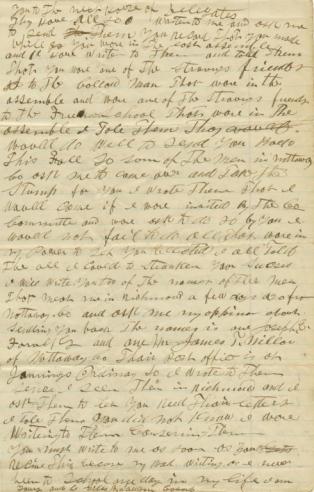 You to be nominated delegates
they have all so written to me and ask me
to send them you Recod that you made
while you wore in the assemble
and I wore write to them and told them
that you wore one of the strongs friends
to the collord man that wore in the
assemble and wore one of the strongs friends
to the Free school that wore in the
assemble I tole them they
would do well to send you back
this Fall so som of the men in Nottoway
co ask me to come over and take the
stump for you I wrote them that I
would come if I wore invited by the co
committe and wore ask to do so by you I
would not fail to do all that wore in
my Power to let you be elected I all told
the all I could to stranken your success
I will write you two of the names of the men
that meat me in Richmond a few days ago from
Nottoway co and ask me my opinion about
sending you back the names is one Joseph
and one Mr James T. Miller
of Nottoway co thair Post office is at
Jannings Ordinary so I wrote to them
sence I seen them in Richmond and I
ask them to let you Read thair letters
I tole them you did not know I wore
writing to them conserning them
You must write to me as soon as you
Recive this excuse my bad writing as I never
been to school one day in my life I am